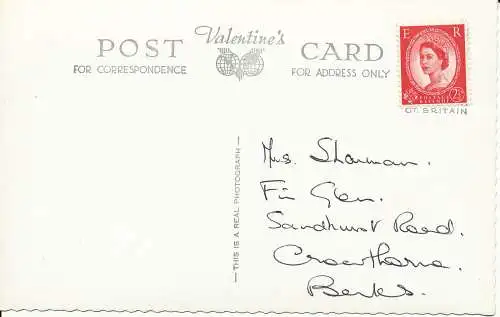 Valentine's
POST CARD
FOR CORRESPONDENCE
FOR ADDRESS ONLY
E R
POSTAGE
REVENUE
2½D
GT. BRITAIN
THIS IS A REAL PHOTOGRAPH
Mrs. Sharman.
Fir Glen.
Sandhurst Road.
Crowthorne.
Berks.